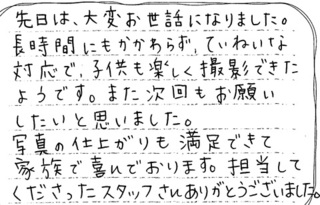 先日は、大変お世話になりました。
長時間にもかかわらず、ていねいな
対応で、子供も楽しく撮影できた
ようです。また次回もお願い
したいと思いました。
写真の仕上がりも満足できて
家族で喜んでおります。担当して
くださったスタッフさんありがとうございました。